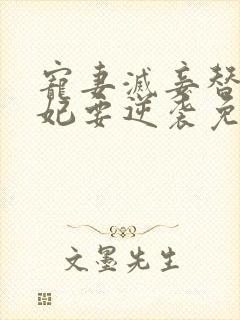 寵妻滅妾替
妃要逆袭免
文墨先生